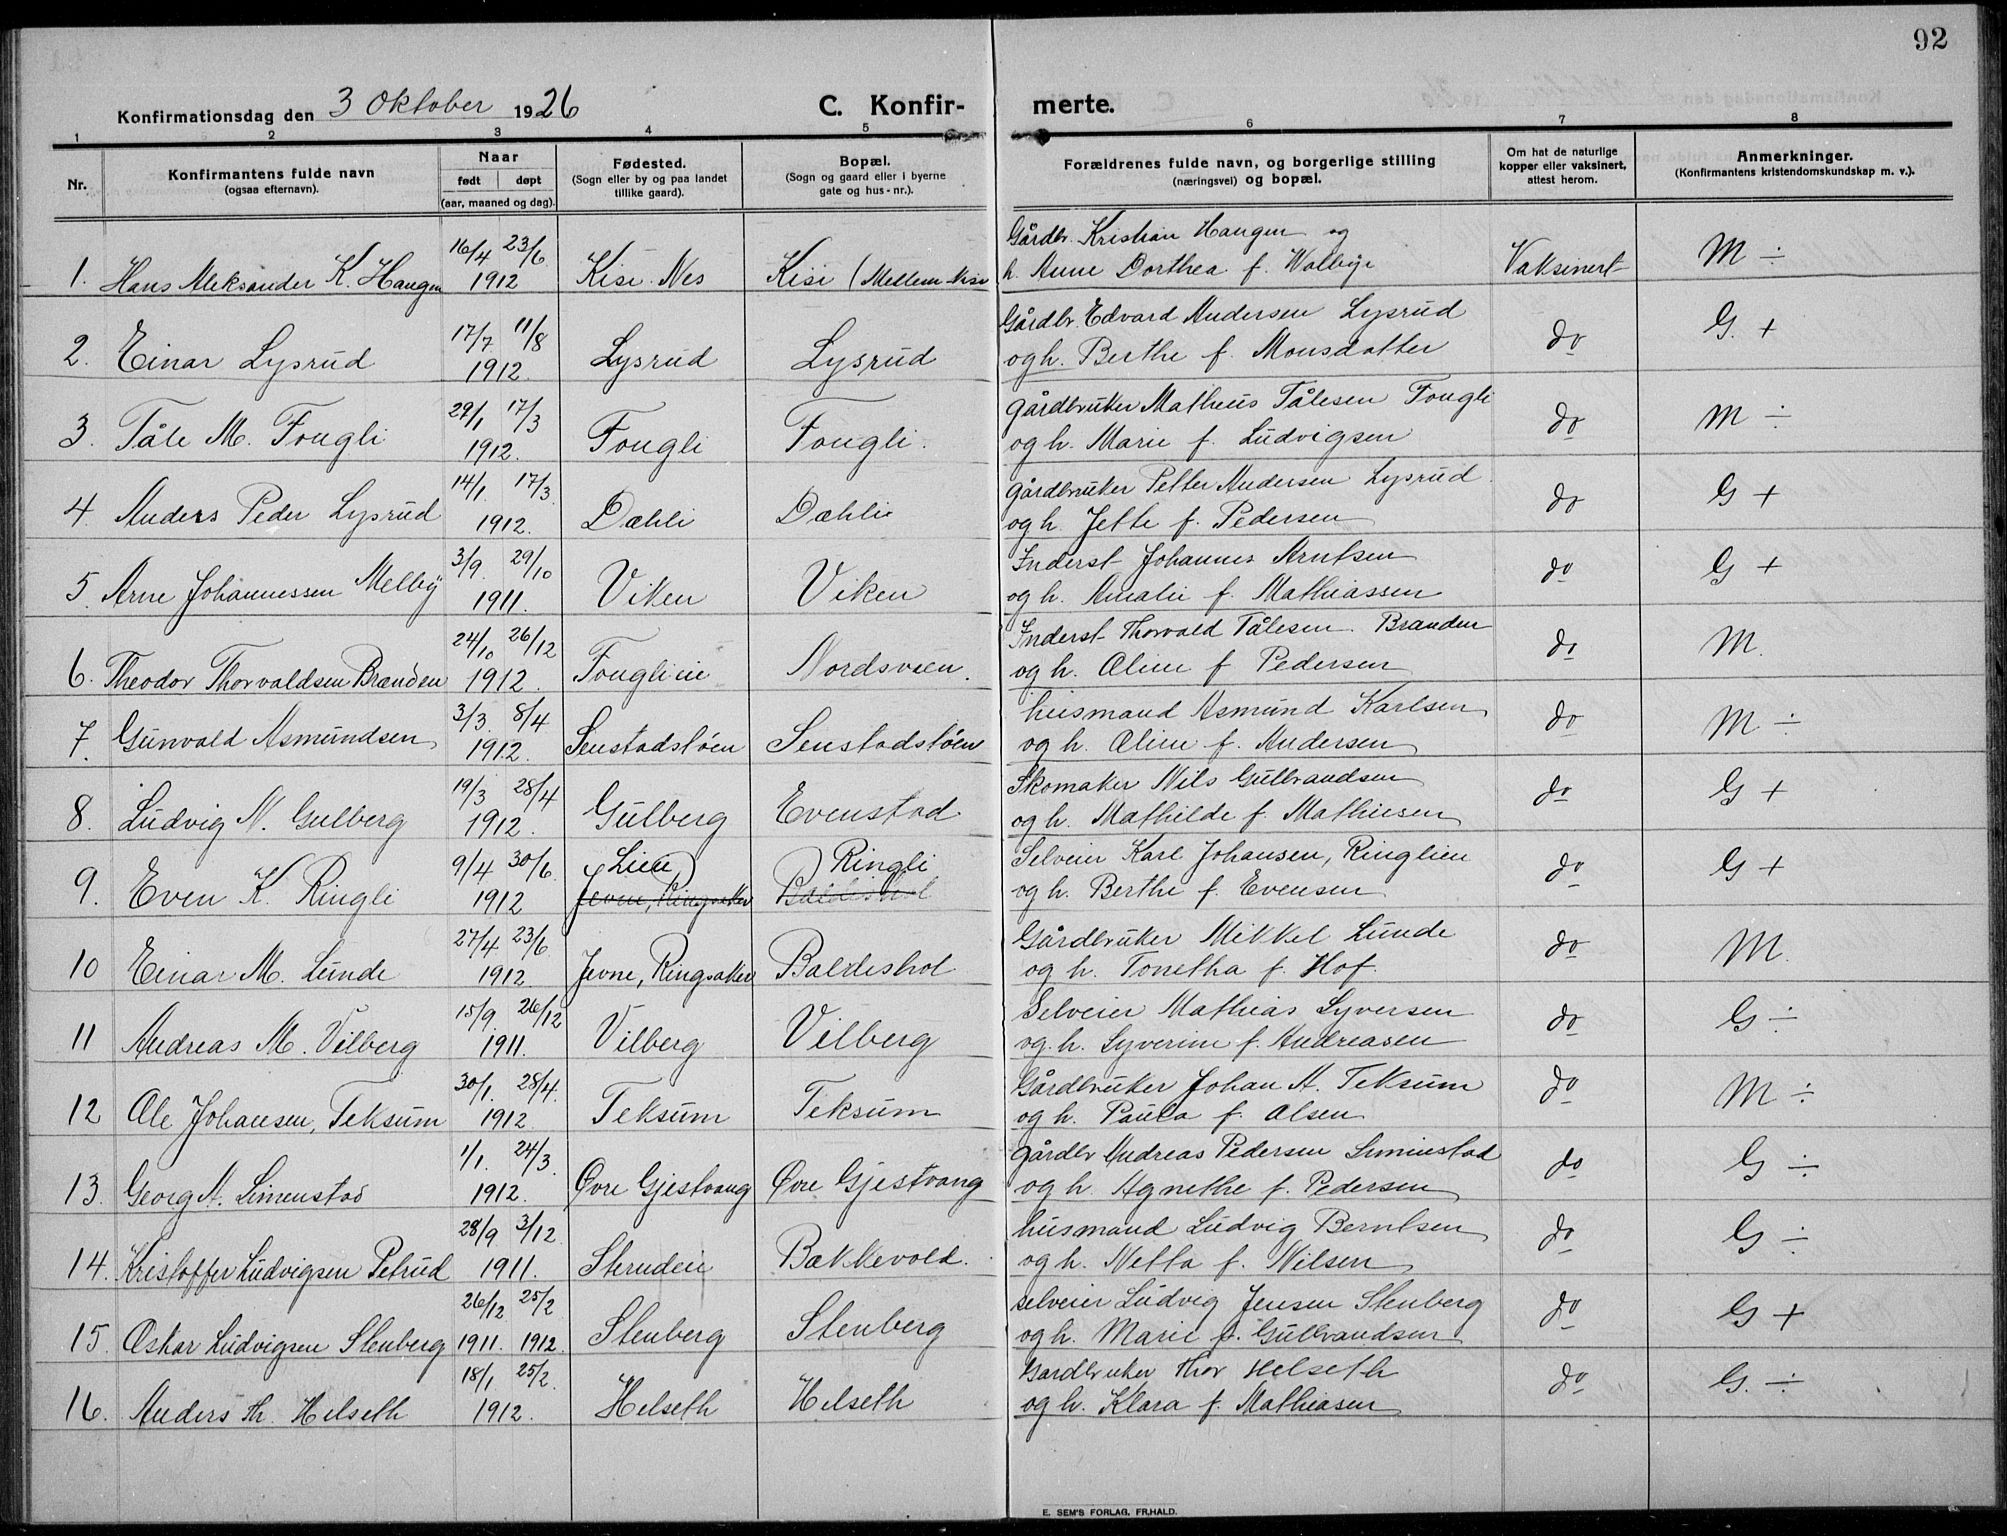 92
Konfirmationsdag den 3 Oktober 1926
C. Konfir- merte.
1 2 3 4 5 6 7 8
Nr.
Konfirmantens fulde navn
(ogsaa efternavn).
Naar
født døpt
(aar, maaned og dag).
Fødested.
(Sogn eller by og paa landet
tillike gaard).
Bopæl.
(Sogn og gaard eller i byerne
gate og hus-nr.).
Forældrenes fulde navn, og borgerlige stilling
(næringsvei) og bopæl.
Om hat de naturlige
kopper eller vaksinert,
attest herom.
Anmerkninger.
(Konfirmantens kristendomskundskap m. v.).
16/4 23/6 Gårdbr. Kristian Haugen og
1. Hans Aleksander K. Haugen 1912 Kise Nes Kise (Mellem Kise h. Anne Dorthea f. Walbye Vaksinert M ÷
17/7 11/8 Gårdbr. Edvard Andersen Lysrud
2. Einar Lysrud 1912. Lysrud Lysrud og h. Berthe f. Monsdatter do G. +
29/1 17/3 gårdbruker Matheus Tålesen Fougli
3. Tåle M. Fougli 1912. Fougli Fougli. og h. Marie f. Ludvigsen do M ÷
14/1. 17/3. gårdbruker Petter Andersen Lysrud.
4. Anders Peder Lysrud 1912. Dæhli Dæhli og h. Jette f. Pedersen do G +
3/9. 29/10 Inderst Johannes Arntsen
5. Arne Johannessen Melby 1911. Viken Viken og h. Amalie f. Mathiassen do G +
24/10 26/12 Inderst Thorvald Tålesen. Branden
6. Theodor Thorvaldsen Branden 1912. Fouglieie Nordsveen. og h. Oline f Pedersen do M.
3/3. 8/4 husmand Asmund Karlsen
7. Gunvald Asmundsen 1912. Senstadstøen Senstadstøen og h. Oline f. Andersen do M ÷
19/3 28/4 Skomaker Nils Gulbrandsen
8. Ludvig N. Gulberg 1912. Gulberg Evenstad og h. Mathilde f. Mathiesen do G +
9/4 30/6. Lien Ringli Selveier Karl Johansen, Ringlien
9. Even K. Ringli 1912 Jevne, Ringsaker Baldishol og h. Berthe f. Evensen do G +
27/4 23/6 Gårdbruker Mikkel Lunde
10 Einar M. Lunde 1912 Jevne, Ringsaker Baldishol og h. Tonetha f. Hof. do M.
15/9. 26/12 Selveier Mathias Syversen
11 Andreas M. Vilberg 1911. Vilberg Vilberg og. h. Syverine f. Andreasen do G ÷
30/1. 28/4. Gårdbruker Johan A. Teksum
12 Ole Johansen, Teksum 1912. Teksum Teksum og h. Paula f. Olsen do M ÷
1/1. 24/3. gårdbr Andreas Pedersen Limenstad
13. Georg A. Limenstad 1912. Øvre Gjestvang Øvre Gjestvang og h. Agnethe f. Pedersen do G ÷
28/9 3/12. husmand Ludvig Berntsen
14. Kristoffer Ludvigsen Petrud 1911. Bækkevold. og h. Netta f. Nilsen do G ÷
26/12 25/2 selveier Ludvig Jensen Stenberg
15. Oskar Ludvigsen Stenberg 1911. 1912. Stenberg Stenberg og h. Marie f. Gulbrandsen do G +
18/1 25/2. Gardbruker Thor Helseth
16. Anders Th. Helseth 1912. Helseth Helseth og h. Klara f. Mathiasen do G. ÷
E. SEM'S FORLAG, FR.HALD.